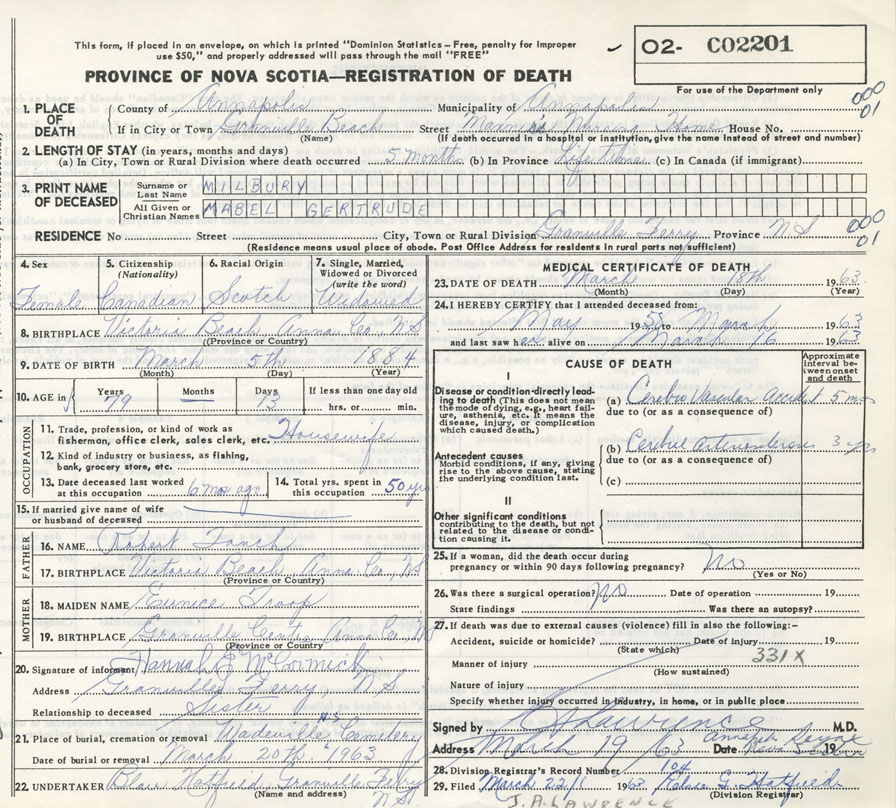 This form, if placed in an envelope, on which is printed "Dominion Statistics—Free, penalty for improper
use $50," and properly addressed will pass through the mail "FREE"
O2- C02201
PROVINCE OF NOVA SCOTIA—REGISTRATION OF DEATH
For use of the Department only
000
01
1. PLACE OF DEATH
County of Annapolis Municipality of Annapolis
If in City or Town Granville Beach Street Home House No.
(Name) (If death occurred in a hospital or institution, give the name instead of street and number)
2. LENGTH OF STAY (in years, months and days)
(a) In City, Town or Rural Division where death occurred 5 months (b) In Province Life time (c) In Canada (if immigrant)
3. PRINT NAME OF DECEASED
Surname or Last Name MILBURY
All Given or Christian Names MABEL GERTRUDE
RESIDENCE No. Street City, Town or Rural Division Granville Ferry Province N S
000
01
(Residence means usual place of abode. Post Office Address for residents in rural parts not sufficient)
4. Sex
Female
5. Citizenship (Nationality)
Canadian
6. Racial Origin
Scotch
7. Single, Married, Widowed or Divorced (write the word)
Widowed
8. BIRTHPLACE Victoria Beach Anna Co, N S
(Province or Country)
9. DATE OF BIRTH March 5th 1884
(Month) (Day) (Year)
10. AGE in Years 79 Months — Days 13 If less than one day old hrs. or min.
OCCUPATION
11. Trade, profession, or kind of work as fisherman, office clerk, sales clerk, etc. Housewife
12. Kind of industry or business, as fishing, bank, grocery store, etc.
13. Date deceased last worked at this occupation 6 mos ago
14. Total yrs. spent in this occupation 50 yrs
15. If married give name of wife or husband of deceased
FATHER
16. NAME Robert
17. BIRTHPLACE Victoria Beach Anna Co, N S
(Province or Country)
MOTHER
18. MAIDEN NAME Eunice Troop
19. BIRTHPLACE Granville Cent. Anna Co, N S
(Province or Country)
20. Signature of informant Hannah E McCormick
Address Granville Ferry, N S
Relationship to deceased Sister
21. Place of burial, cremation or removal Wadeville Cemetery N.S.
Date of burial or removal March 20th 1963
22. UNDERTAKER Blair Hatfield Granville Ferry
(Name and address) N S
MEDICAL CERTIFICATE OF DEATH
23. DATE OF DEATH March 18th 1963
(Month) (Day) (Year)
24. I HEREBY CERTIFY that I attended deceased from:
May 1958 to March 1963
and last saw her alive on March 16 1963
CAUSE OF DEATH
Approximate interval between onset and death
I
Disease or condition directly leading to death (This does not mean the mode of dying, e.g., heart failure, asthenia, etc. It means the disease, injury, or complication which caused death.)
(a) Cerebro Vascular Accident 5 mos
due to (or as a consequence of)
Antecedent causes
Morbid conditions, if any, giving rise to the above cause, stating the underlying condition last.
(b) 3 yrs
due to (or as a consequence of)
(c)
II
Other significant conditions contributing to the death, but not related to the disease or condition causing it.
25. If a woman, did the death occur during pregnancy or within 90 days following pregnancy? No
(Yes or No)
26. Was there a surgical operation? No Date of operation 19
State findings Was there an autopsy?
27. If death was due to external causes (violence) fill in also the following:-
Accident, suicide or homicide? Date of injury 19
(State which) 331 X
Manner of injury
(How sustained)
Nature of injury
Specify whether injury occurred in industry, in home, or in public place
Signed by J A Lawrence M.D.
Annapolis Royal
Address March 19 / 63 Date Nova Scotia 19
28. Division Registrar's Record Number 104
29. Filed March 22 1963 Elsie G. Hatfield
(Division Registrar)
J.A. LAWRENCE